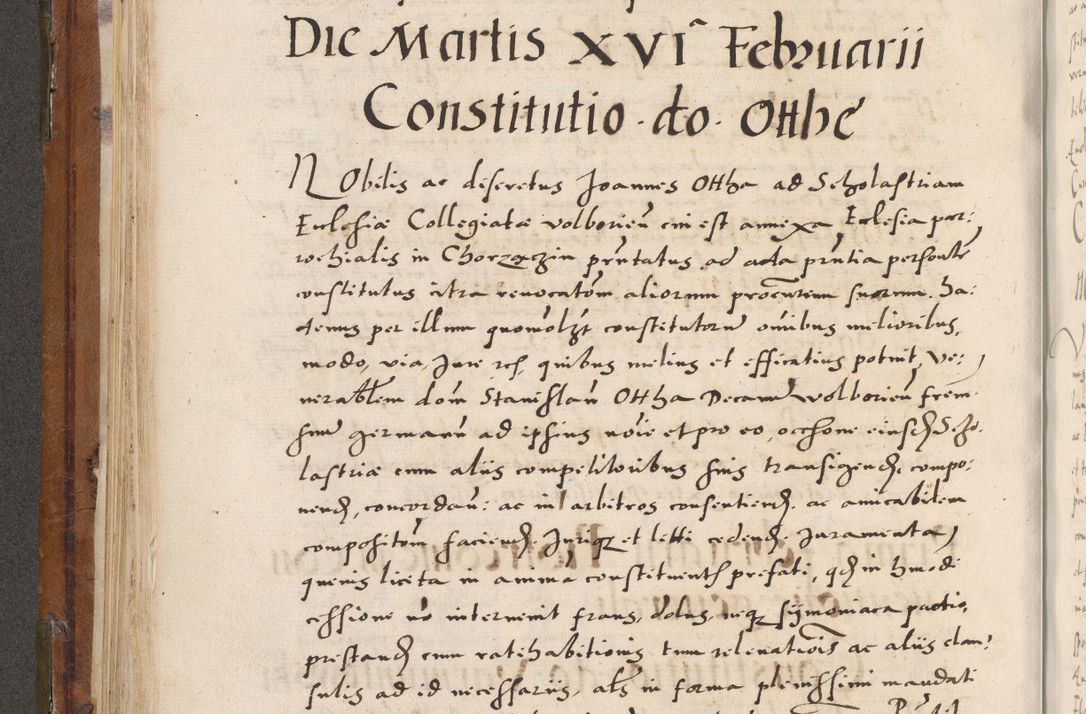 Die Martis XVI Februarii
Constitutio do. Otthe
Nobilis ac discretus Joannes Ottha ad Scholastriam
Ecclesiæ Collegiatæ Volborien̄ cui est annexa Ecclesia par:
rochialis in Chorzączin pn̄tatus ad acta pn̄tia personalr̄
constitutus citra revocatōm aliorum procur̄um suorum. ha:
ctenus per illum quomōlzt constitutorū om̄ibus melioribus,
modo, via, Jure rc̄, quibus melius et efficatius potuit, Ve:
nerablem dom̄ Stanislaū Ottha Decanū Volborien̄ frem̄
suū germanū ad ipsius noīe et pro eo, occ̄sione eiusd̄ Scho:
lastriæ cum aliis competitoribus suis transigend̄. compo:
nend̄, concordan̄: ac in arbitros consentiend̄. ac amicabilem
compositōm faciend̄. Juriq̨ et letti cedend̄. Juramenta
quevis licita in anima constituentis prefati, qd̄ in hmodi
cessione nō intervenit fraus, dolus, neq̨ symoniaca pactio,
prestand̄ cum ratehabitionis tum relevatiōis ac aliis clau:
sulis ad id necessariis, als̄ in forma plenissimi mandati